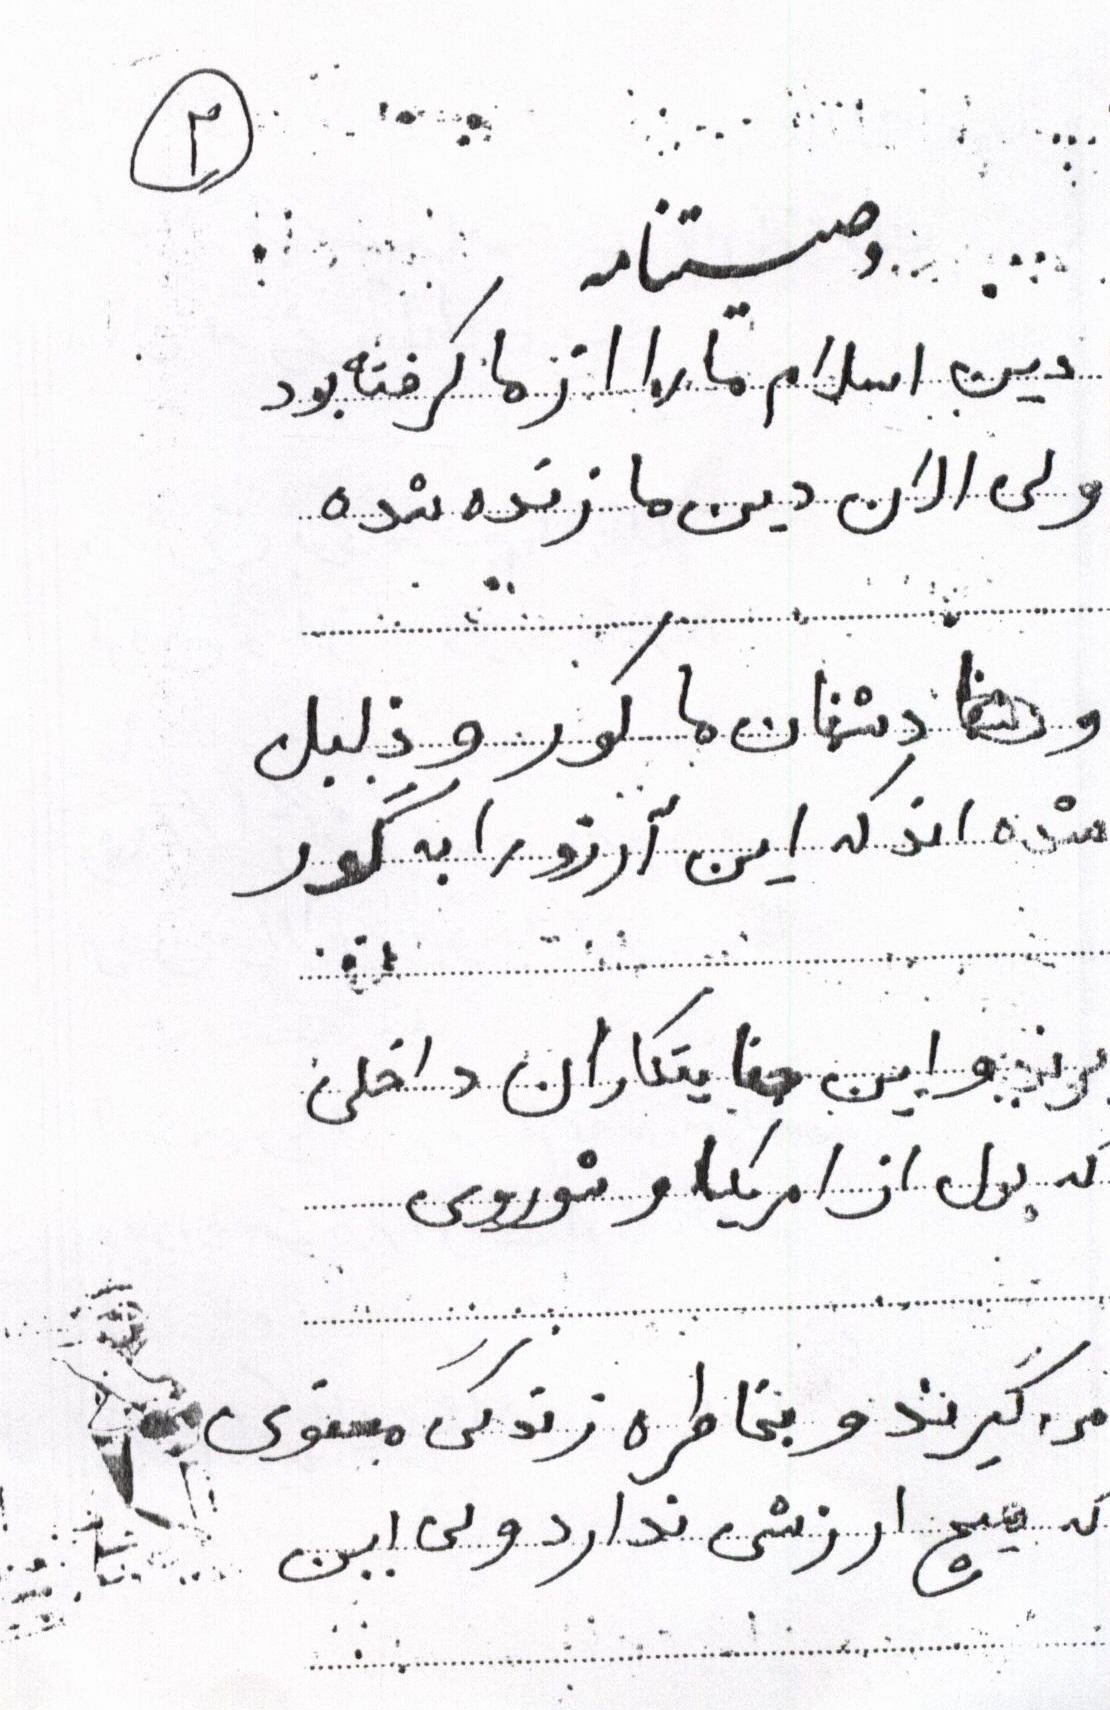 ۲
وصیتنامه
دین اسلام ما را از ما گرفته بود
ولی الان دین ما زنده شده
و دشمنان ما کور و ذلیل
شده اند که این آرزو را به گور
برند و این جنایتکاران داخلی
که پول از امریکا و شوروی
می گیرند و بخاطره زندگی
که هیچ ارزشی ندارد ولی این